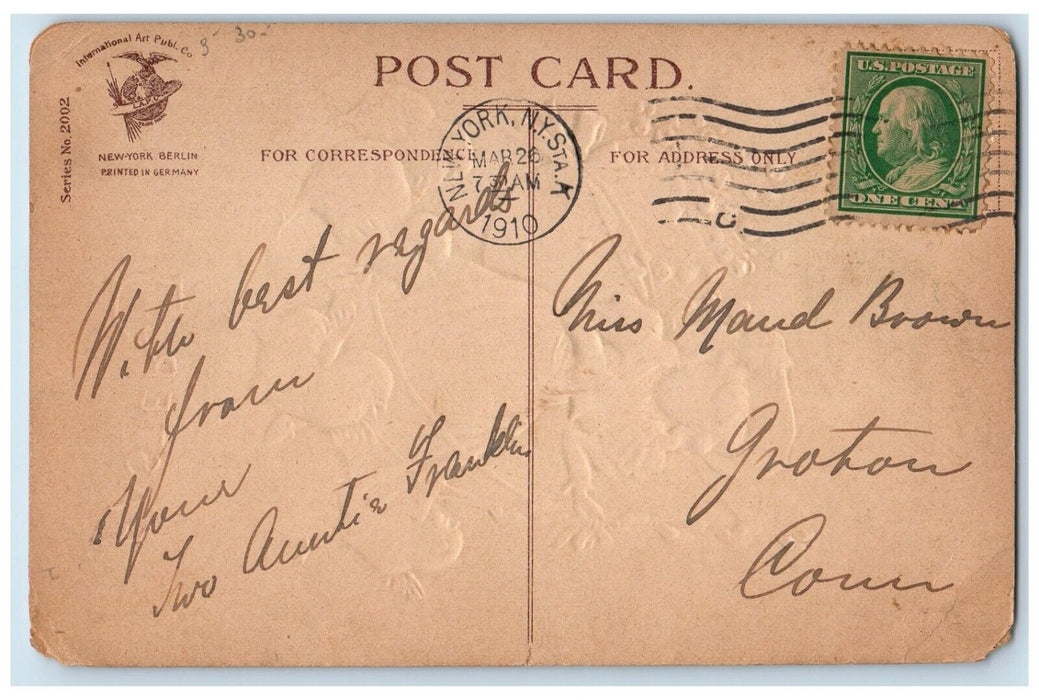 International Art Publ. Co
3 - 30 -
Series No. 2002
NEW-YORK BERLIN
PRINTED IN GERMANY
POST CARD.
FOR CORRESPONDENCE
FOR ADDRESS ONLY
YORK, N.Y. STA. K
MAR 26
7 AM
1910
C
U.S. POSTAGE
ONE CENT
With best regards
from
Your
Two Auntie Franklin
Miss Maud Brown
Groton
Conn